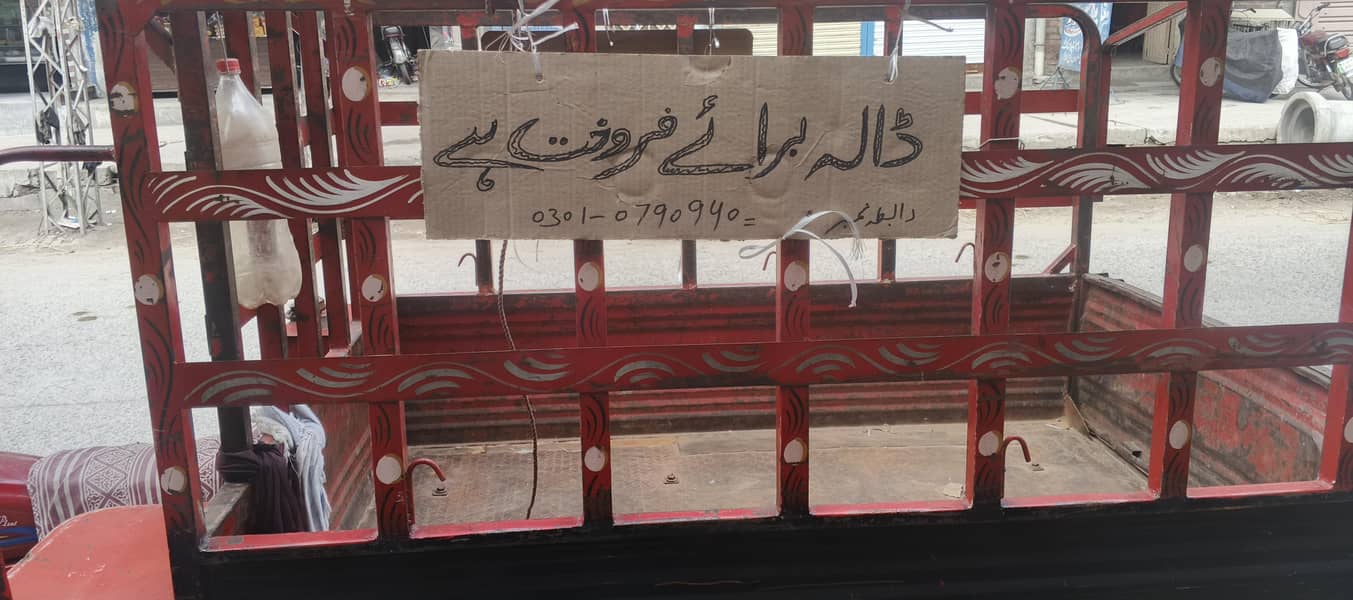 ڈالہ برائے فروخت ہے
رابطہ نمبر = 0301-0790940